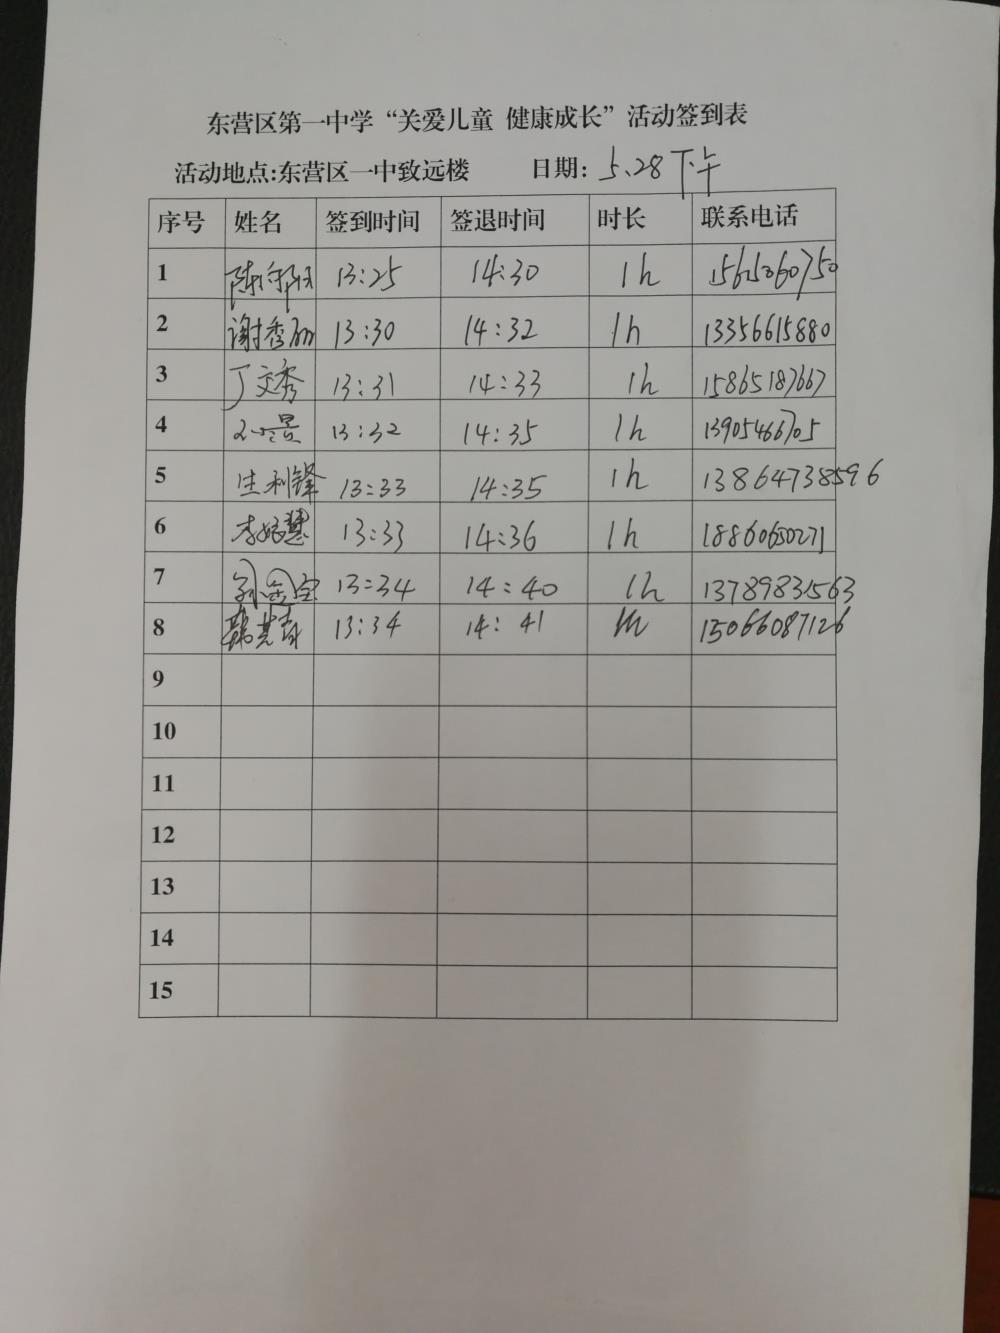 东营区第一中学“关爱儿童 健康成长”活动签到表
活动地点:东营区一中致远楼 日期: 5.28下午
序号 姓名 签到时间 签退时间 时长 联系电话
1 13:25 14:30 1h 15615060750
2 谢秀丽 13:30 14:32 1h 13356615880
3 丁文秀 13:31 14:33 1h 15865187667
4 13:32 14:35 1h 13905466705
5 生利锋 13:33 14:35 1h 13864738596
6 13:33 14:36 1h 18860650271
7 孙金宝 13:34 14:40 1h 13789831563
8 13:34 14:41 1h 15066087126
9
10
11
12
13
14
15